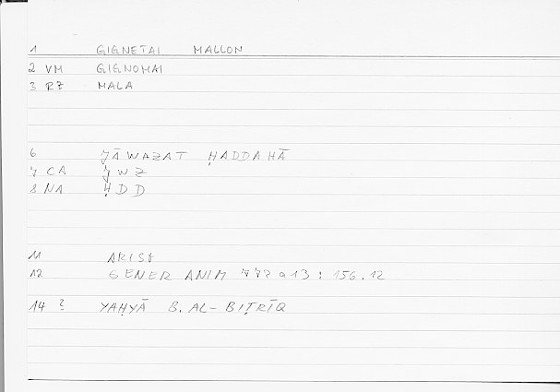 1 GIGNETAI MALLON
2 VM GIGNOMAI
3 R7 MALA
6 ǦĀWAZAT ḤADDAHĀ
7 CA ǦWZ
8 NA ḤDD
11 ARIST
12 GENER ANIM 777a13 : 156.12
14 ? YAḤYĀ B. AL-BIṬRĪQ